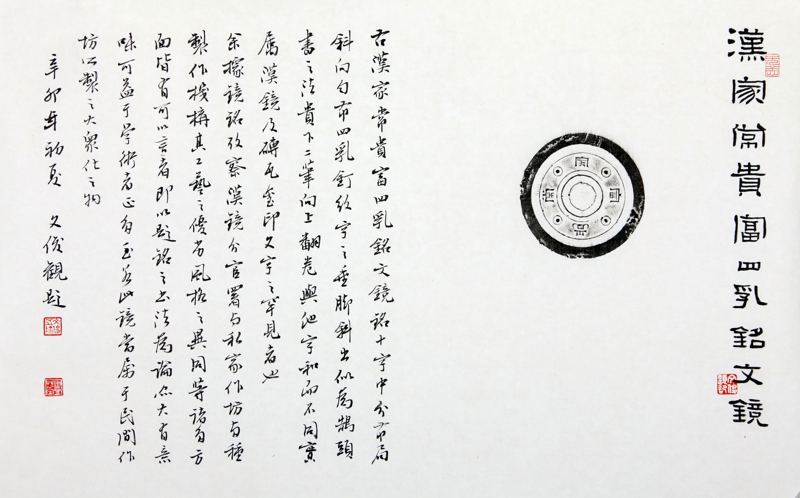 漢家常貴富四乳銘文鏡
家常貴富
右漢家常貴富四乳銘文鏡銘十字中分布局
斜向勻布四乳釘紋字之垂脚斜出似為鵠頭
書之法貴下二筆向上翻卷與他字和而不同實
屬漢鏡及磚瓦金印文字之罕見者也
余據鏡銘考察漢鏡分官署与私家作坊両種
製作機構其工藝之優劣風格之異同等諸多方
面皆有可以言者即以題銘之書法為論亦大有意
味可益于學術者正多至若此鏡當屬于民間作
坊所製之大眾化之物
辛卯年初夏 文俊觀題